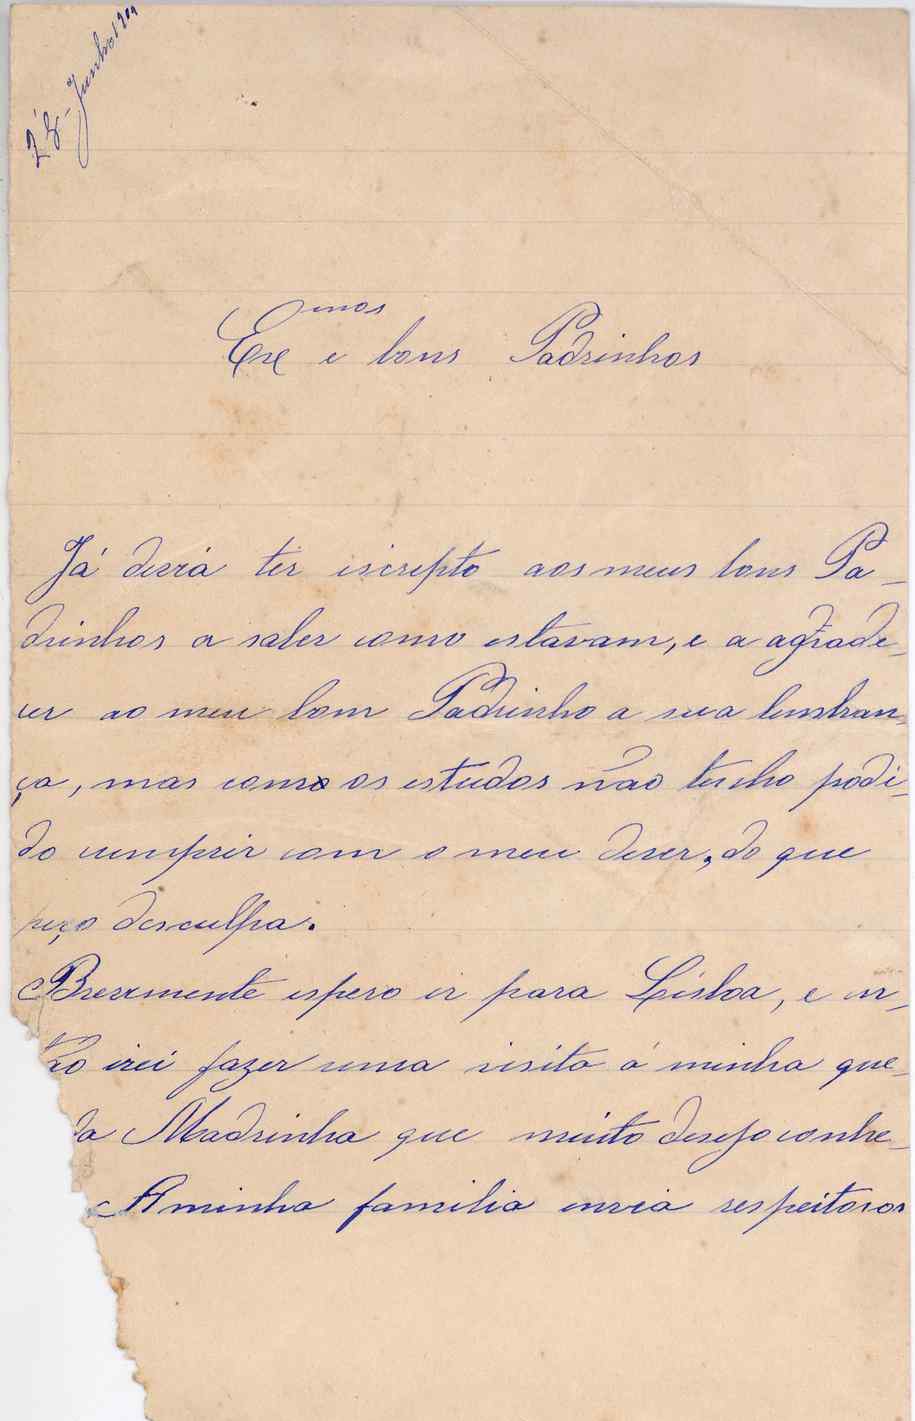 28-Junho 190
Ex.mos e bons Padrinhos
Já devia ter escrepto aos meus bons Pa-
drinhos a saber como estavam, e a agrade-
cer ao meu bom Padrinho a sua lembran-
ça, mas como os estudos não tenho podi-
do cumprir com o meu dever, do que
peço desculpa.
Brevemente espero ir para Lisboa, e en-
tão irei fazer uma visita á minha que-
da Madrinha que muito desejo conhe-
A minha familia envia respeitosos